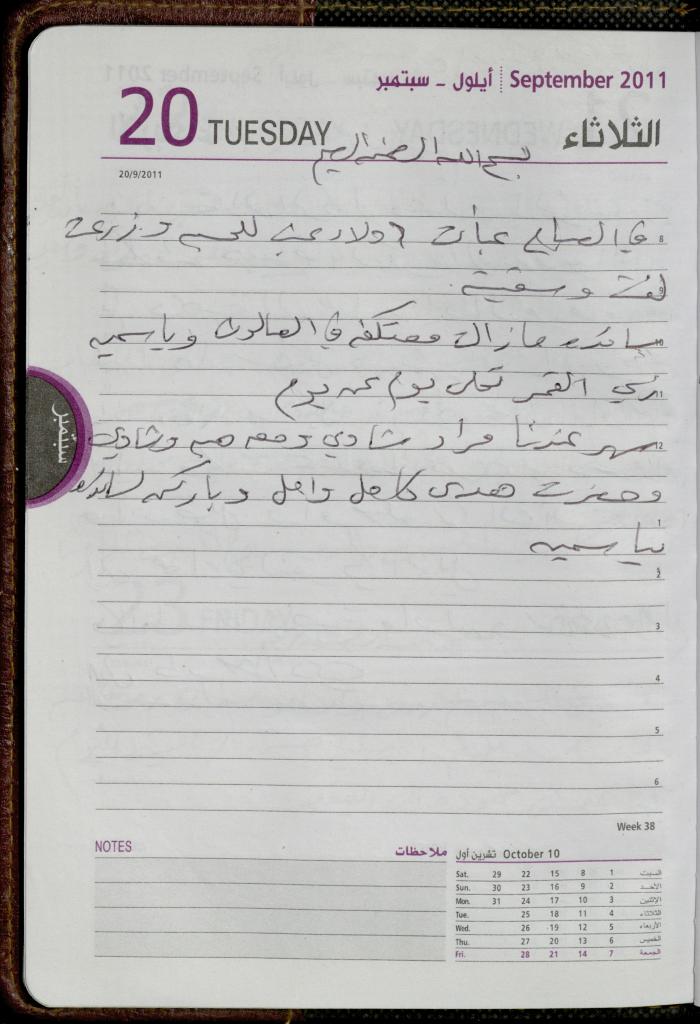 September 2011 أيلول - سبتمبر
20 TUESDAY الثلاثاء
بسم الله الرحمن الرحيم
20/9/2011
8 في الصباح عبأت أولادي وزرعت
9 لفت وسقيته
10 مازالت معتكفه في الصالون وياسميه
11 زي القمر تحلى يوم عن يوم
12 سهر عندنا مراد شادي ومعه وشادي
وحضرت هدى كامل وامل وباركن
1 بياسميه
2
3
4
5
6
سبتمبر
Week 38
NOTES ملاحظات
October 10 تشرين أول
Sat. 29 22 15 8 1 السبت
Sun. 30 23 16 9 2 الأحد
Mon. 31 24 17 10 3 الإثنين
Tue. 25 18 11 4 الثلاثاء
Wed. 26 19 12 5 الأربعاء
Thu. 27 20 13 6 الخميس
Fri. 28 21 14 7 الجمعة